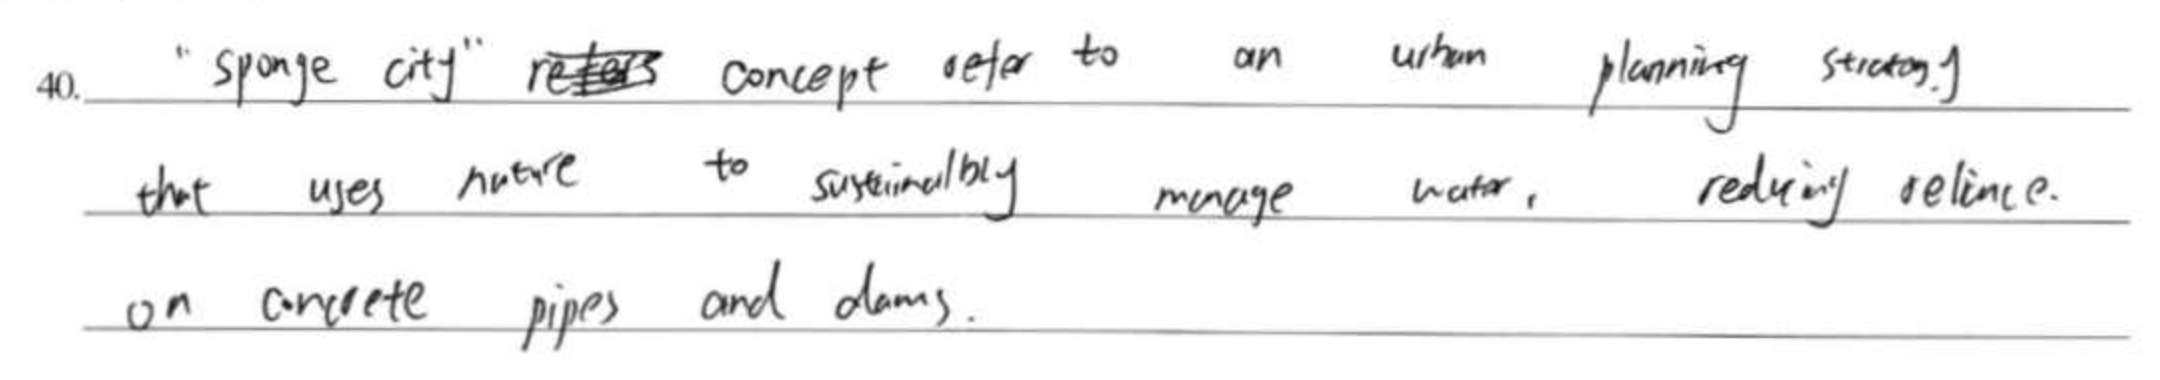 40. "sponge city" concept refer to an urban planning strategy
that uses nature to sustainalbly manage water, reducing relince.
on concrete pipes and dams.